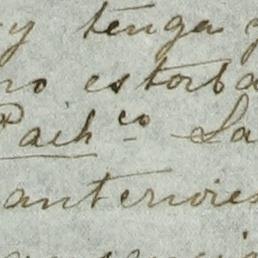 y tenga y
no estorba
Paih^co La
anteriores